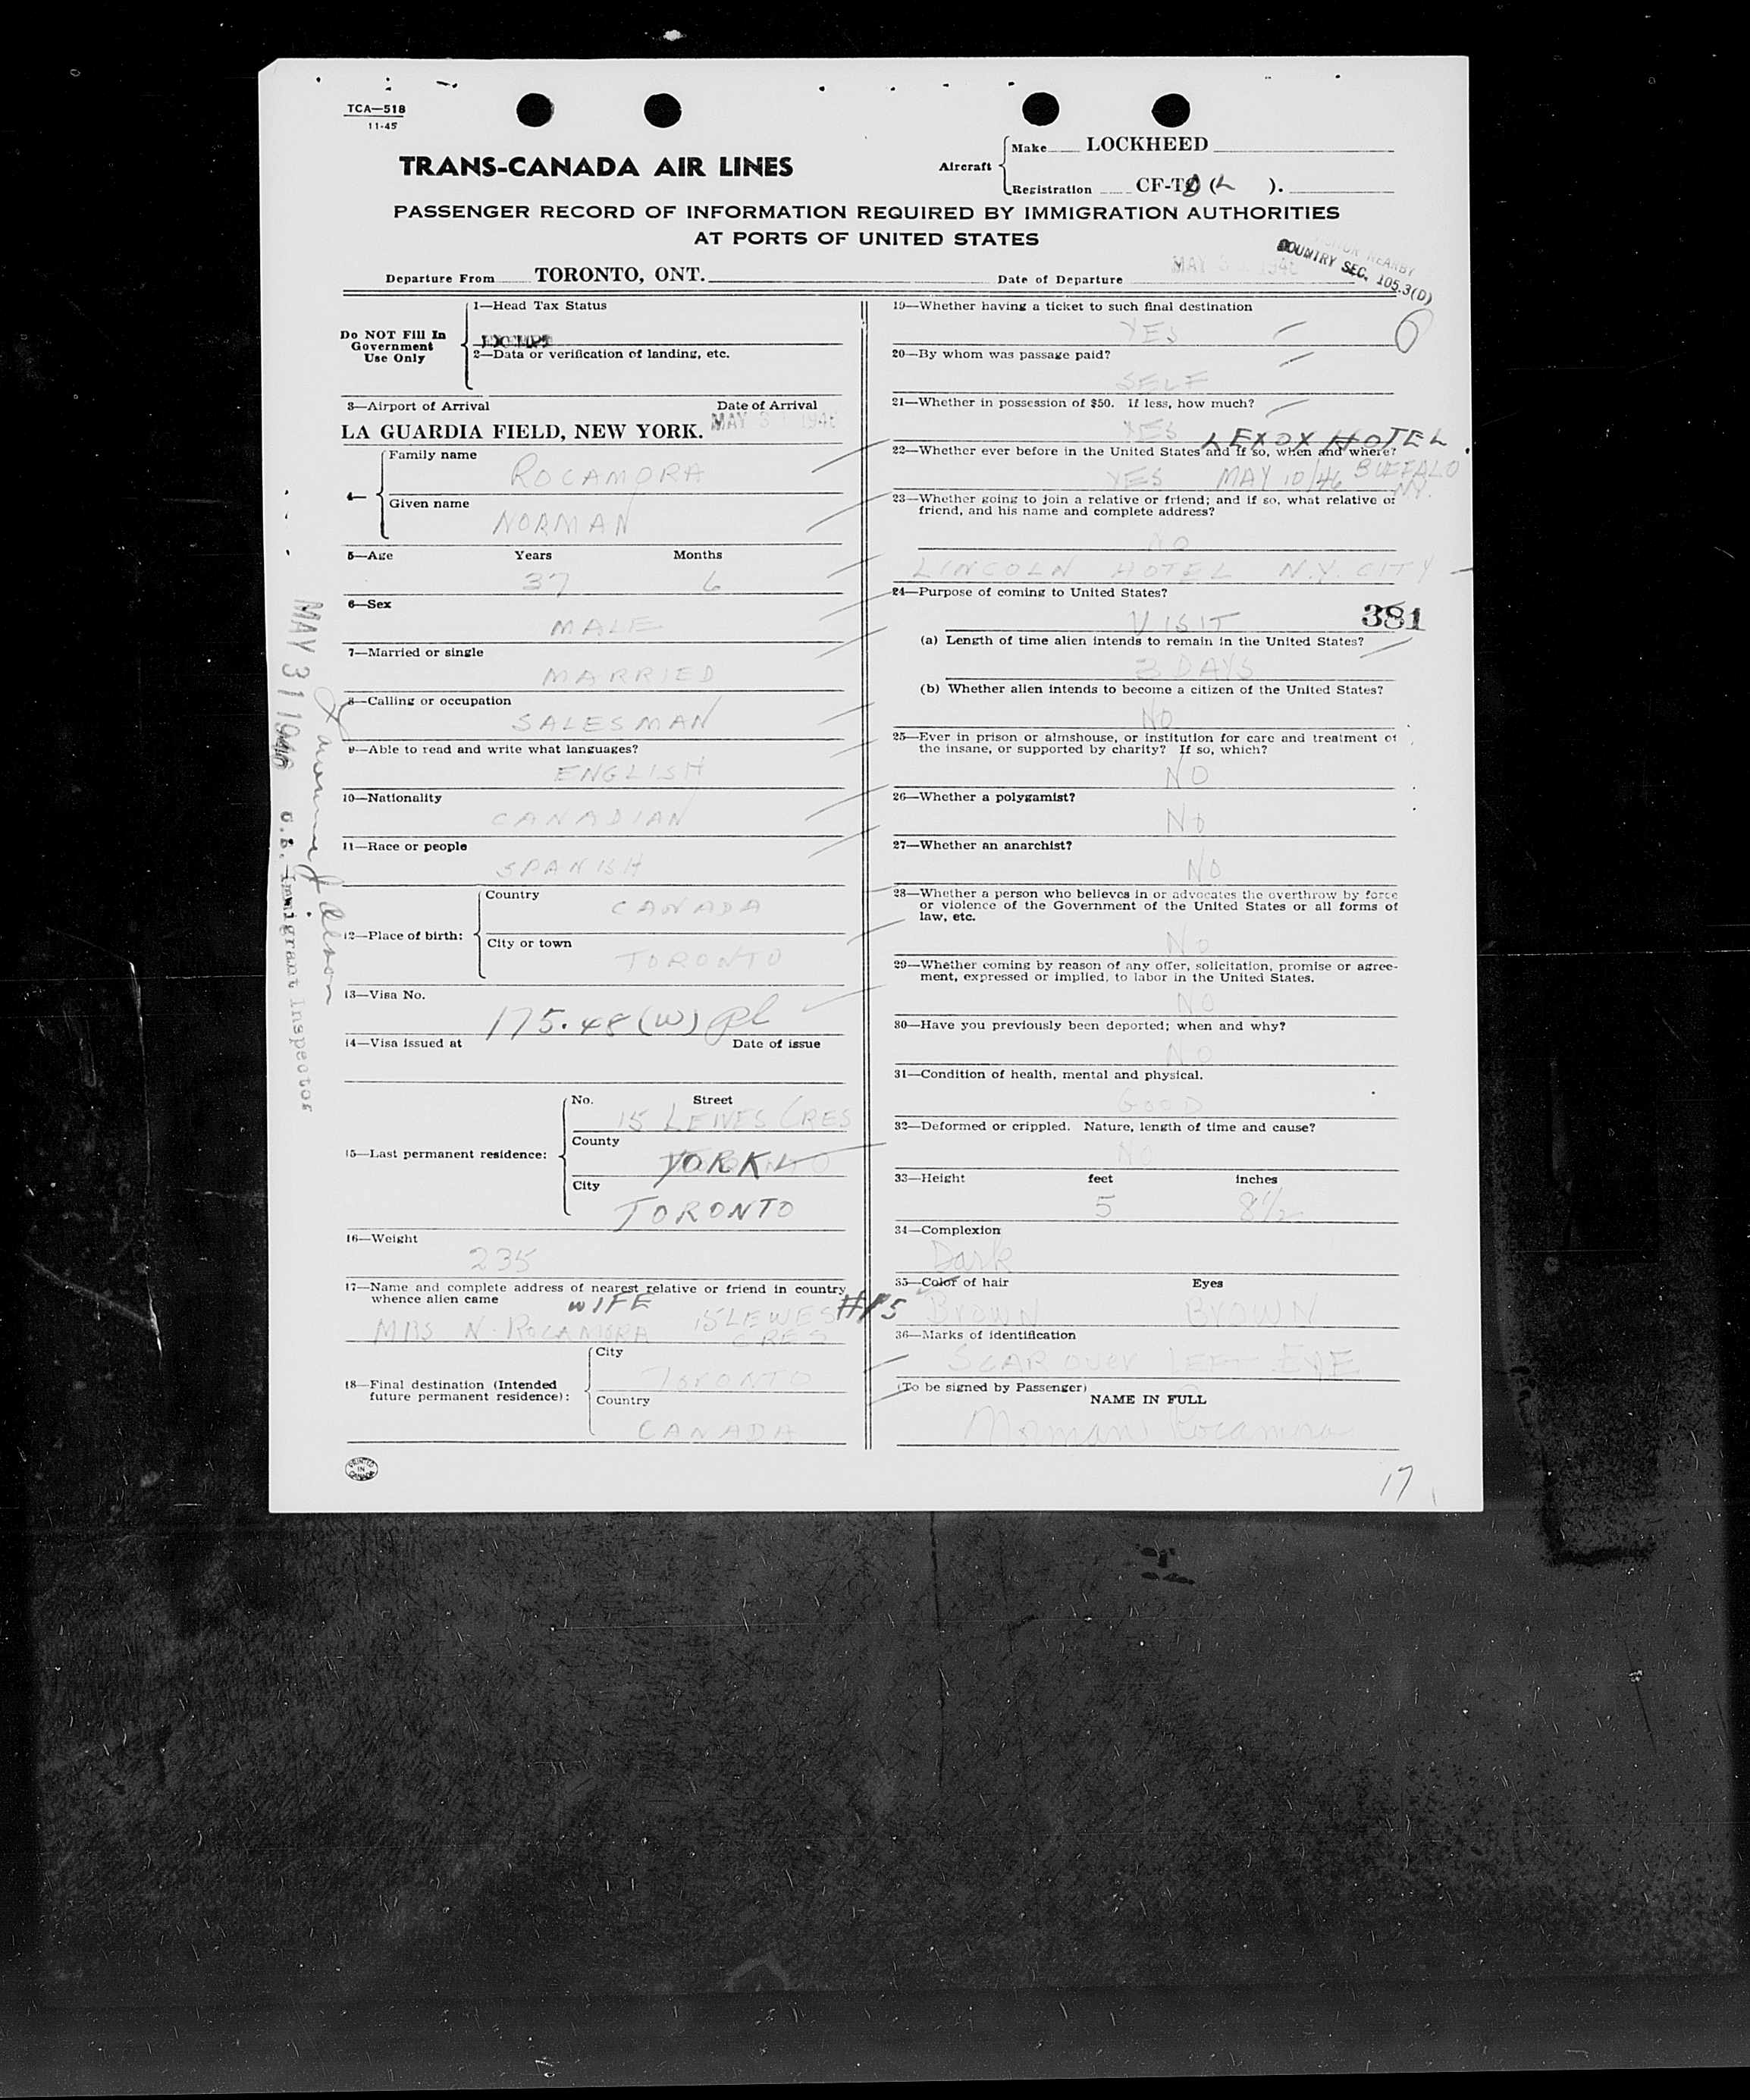 TCA—518
11-45
TRANS-CANADA AIR LINES
Aircraft
Make LOCKHEED
Registration CF-T ( L ).
PASSENGER RECORD OF INFORMATION REQUIRED BY IMMIGRATION AUTHORITIES
AT PORTS OF UNITED STATES
NEARBY
COUNTRY SEC. 105.3(D)
Departure From TORONTO, ONT. Date of Departure MAY 1946
Do NOT Fill In
Government
Use Only
1—Head Tax Status
EXEMPT
2—Data or verification of landing, etc.
3—Airport of Arrival Date of Arrival
LA GUARDIA FIELD, NEW YORK. MAY 3 1946
4—
Family name
ROCAMORA
Given name
NORMAN
5—Age Years Months
37 6
6—Sex
MALE
7—Married or single
MARRIED
8—Calling or occupation
SALESMAN
9—Able to read and write what languages?
ENGLISH
10—Nationality
CANADIAN
11—Race or people
SPANISH
12—Place of birth:
Country
CANADA
City or town
TORONTO
13—Visa No.
175.48 (W)
14—Visa issued at Date of issue
15—Last permanent residence:
No. Street
15 LEWES CRES
County
YORK
City
TORONTO
16—Weight
235
17—Name and complete address of nearest relative or friend in country
whence alien came
WIFE
MRS N. ROCAMORA 15 LEWES #15
CRES
18—Final destination (Intended
future permanent residence):
City
TORONTO
Country
CANADA
PRINTED
IN
CANADA
MAY 31 1946 U.S. Immigrant Inspector
19—Whether having a ticket to such final destination
YES
6
20—By whom was passage paid?
SELF
21—Whether in possession of $50. If less, how much?
YES
LEXOX HOTEL
22—Whether ever before in the United States and if so, when and where?
YES MAY 10/46 BUFFALO
N.Y.
23—Whether going to join a relative or friend; and if so, what relative or
friend, and his name and complete address?
NO
LINCOLN HOTEL N.Y. CITY
24—Purpose of coming to United States?
VISIT
381
(a) Length of time alien intends to remain in the United States?
3 DAYS
(b) Whether alien intends to become a citizen of the United States?
NO
25—Ever in prison or almshouse, or institution for care and treatment of
the insane, or supported by charity? If so, which?
NO
26—Whether a polygamist?
NO
27—Whether an anarchist?
NO
28—Whether a person who believes in or advocates the overthrow by force
or violence of the Government of the United States or all forms of
law, etc.
NO
29—Whether coming by reason of any offer, solicitation, promise or agree-
ment, expressed or implied, to labor in the United States.
NO
30—Have you previously been deported; when and why?
NO
31—Condition of health, mental and physical.
GOOD
32—Deformed or crippled. Nature, length of time and cause?
NO
33—Height feet inches
5 8½
34—Complexion
Dark
35—Color of hair Eyes
BROWN BROWN
36—Marks of identification
SCAR OVER LEFT EYE
(To be signed by Passenger)
NAME IN FULL
Norman Rocamora
17